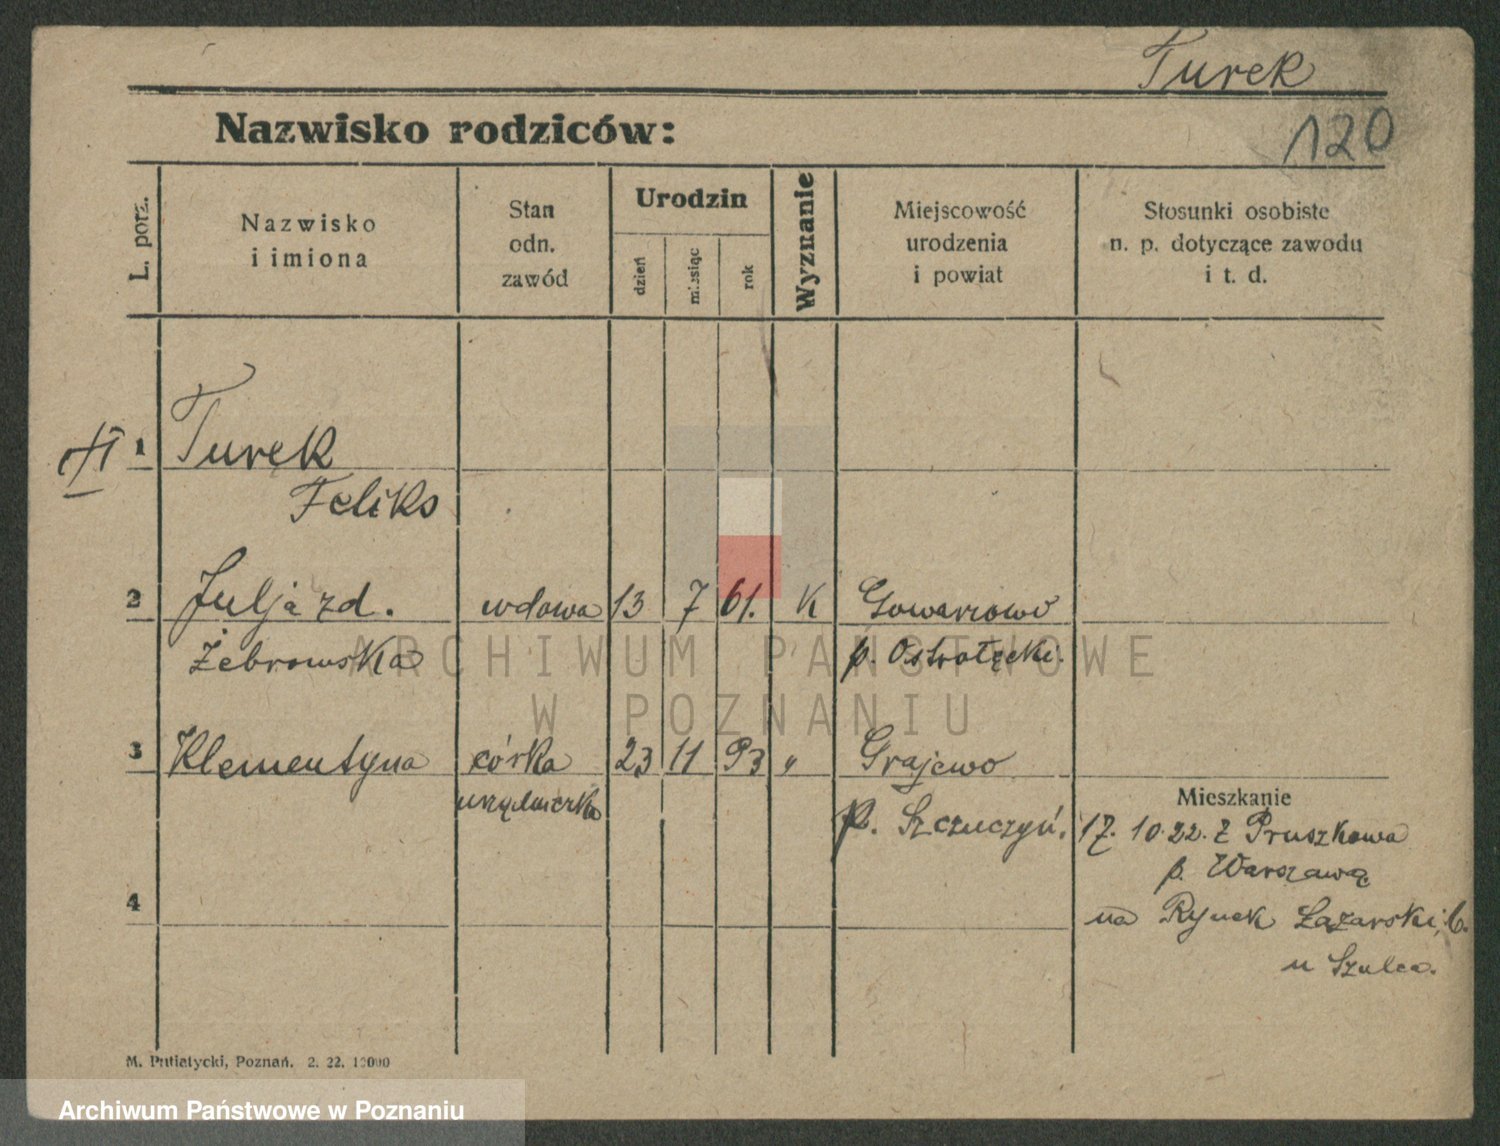 Turek
120
Nazwisko rodziców:
L. porz.
Nazwisko
i imiona
Stan
odn.
zawód
Urodzin
dzień
miesiąc
rok
Wyznanie
Miejscowość
urodzenia
i powiat
Stosunki osobiste
n. p. dotyczące zawodu
i t. d.
1 Turek
Feliks
2 Julja zd. wdowa 13 7 61. K Goworowo
Żebrowska p. Ostrołęcki.
3 Klementyna córka 23 11 93 " Grajewo
urzędniczka p. Szczuczyń.
Mieszkanie
17. 10.22. z Pruszkowa
p. Warszawą
4
na Rynek Łazarski 6.
u Szulca.
M. Putiatycki, Poznań. 2. 22. 10000
ARCHIWUM PAŃSTWOWE
W POZNANIU
Archiwum Państwowe w Poznaniu